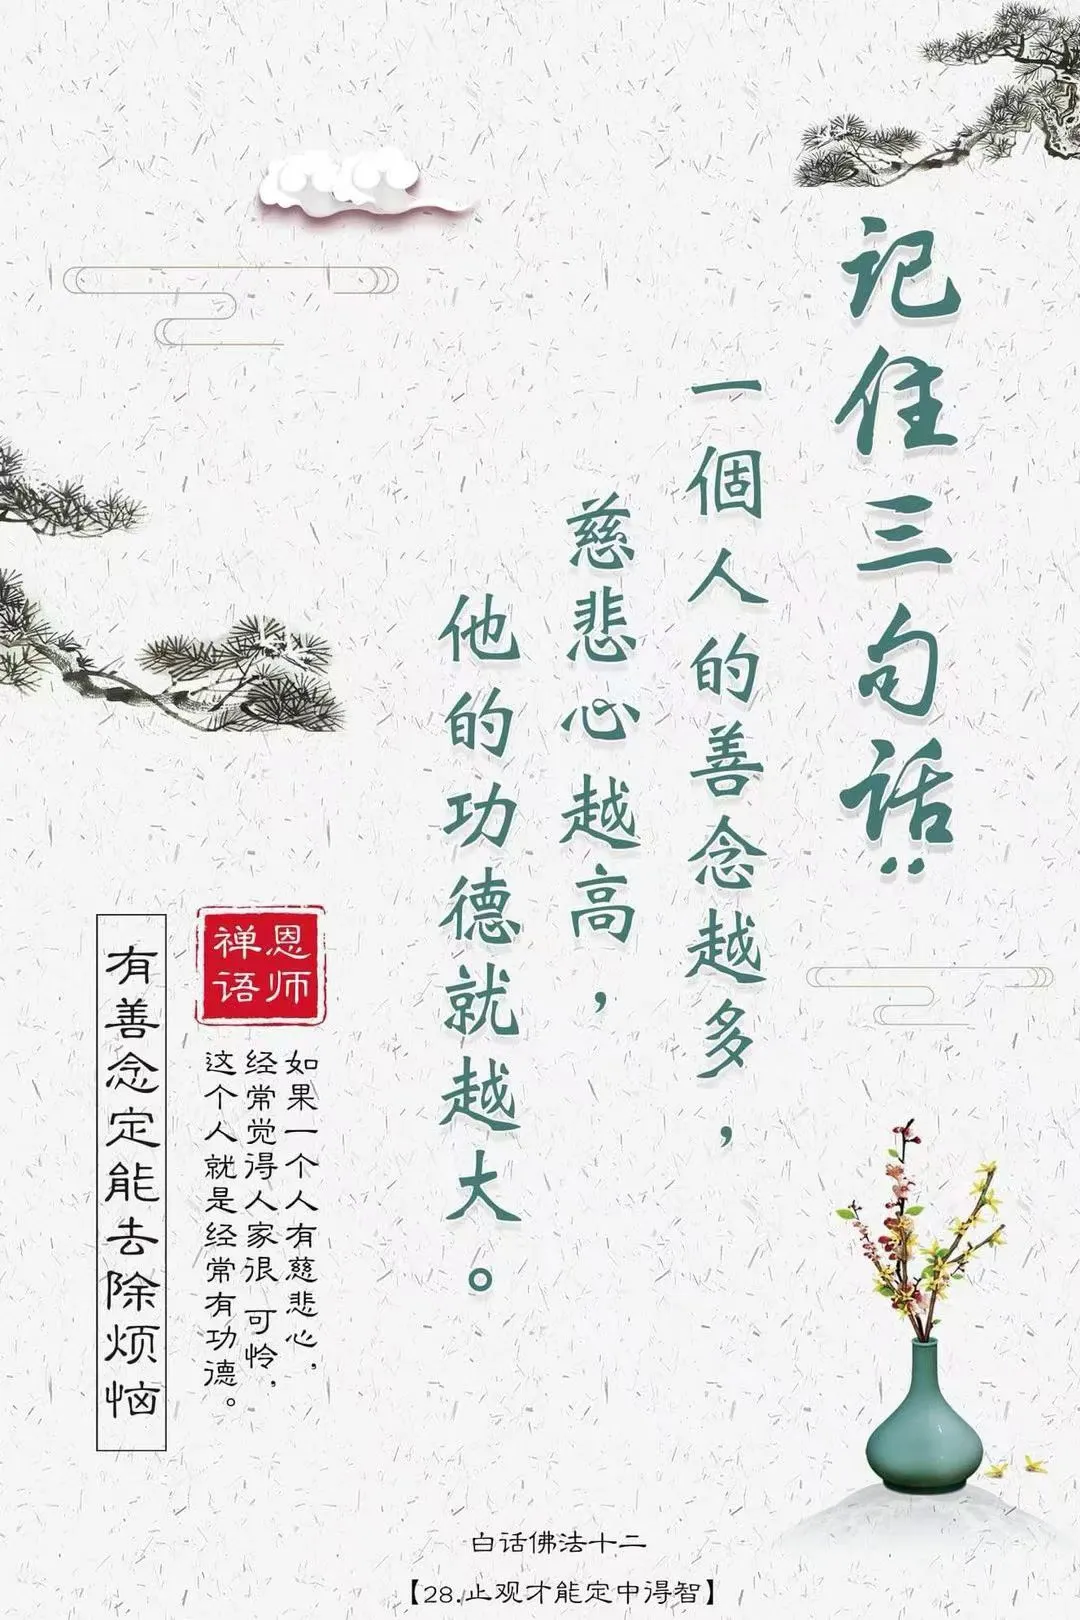 记住三句话：
一個人的善念越多，
慈悲心越高，
他的功德就越大。
恩师
禅语
如果一个人有慈悲心，
经常觉得人家很可怜，
这个人就是经常有功德。
有善念定能去除烦恼
白话佛法十二
【28.止观才能定中得智】